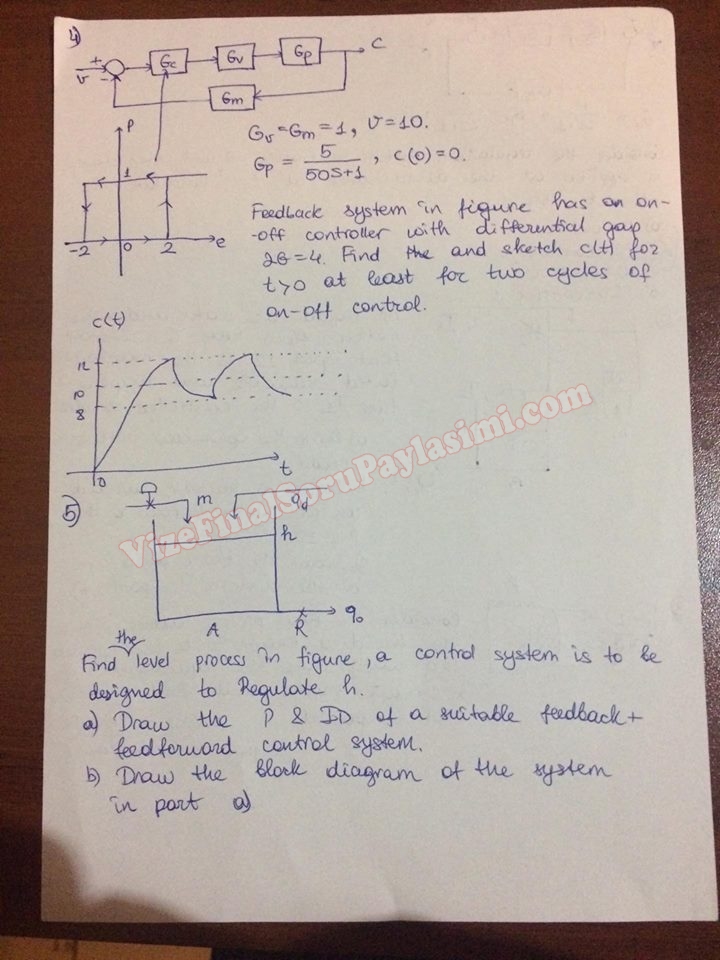 4)
+ Gc Gv Gp C
v -
Gm
P
1
-2 0 2 e
Gv = Gm = 1, v = 10.
Gp = 5 / 50s+1 , c(0) = 0.
Feedback system in figure has an on-
-off controller with differential gap
2G = 4. Find the and sketch c(t) for
t > 0 at least for two cycles of
on-off control.
c(t)
12
10
8
0 t
5)
m qd
h
VizeFinalSoruPaylasimi.com
A R q0
the
Find level process in figure, a control system is to be
designed to Regulate h.
a) Draw the P & ID of a suitable feedback +
feedforward control system.
b) Draw the block diagram of the system
in part a)